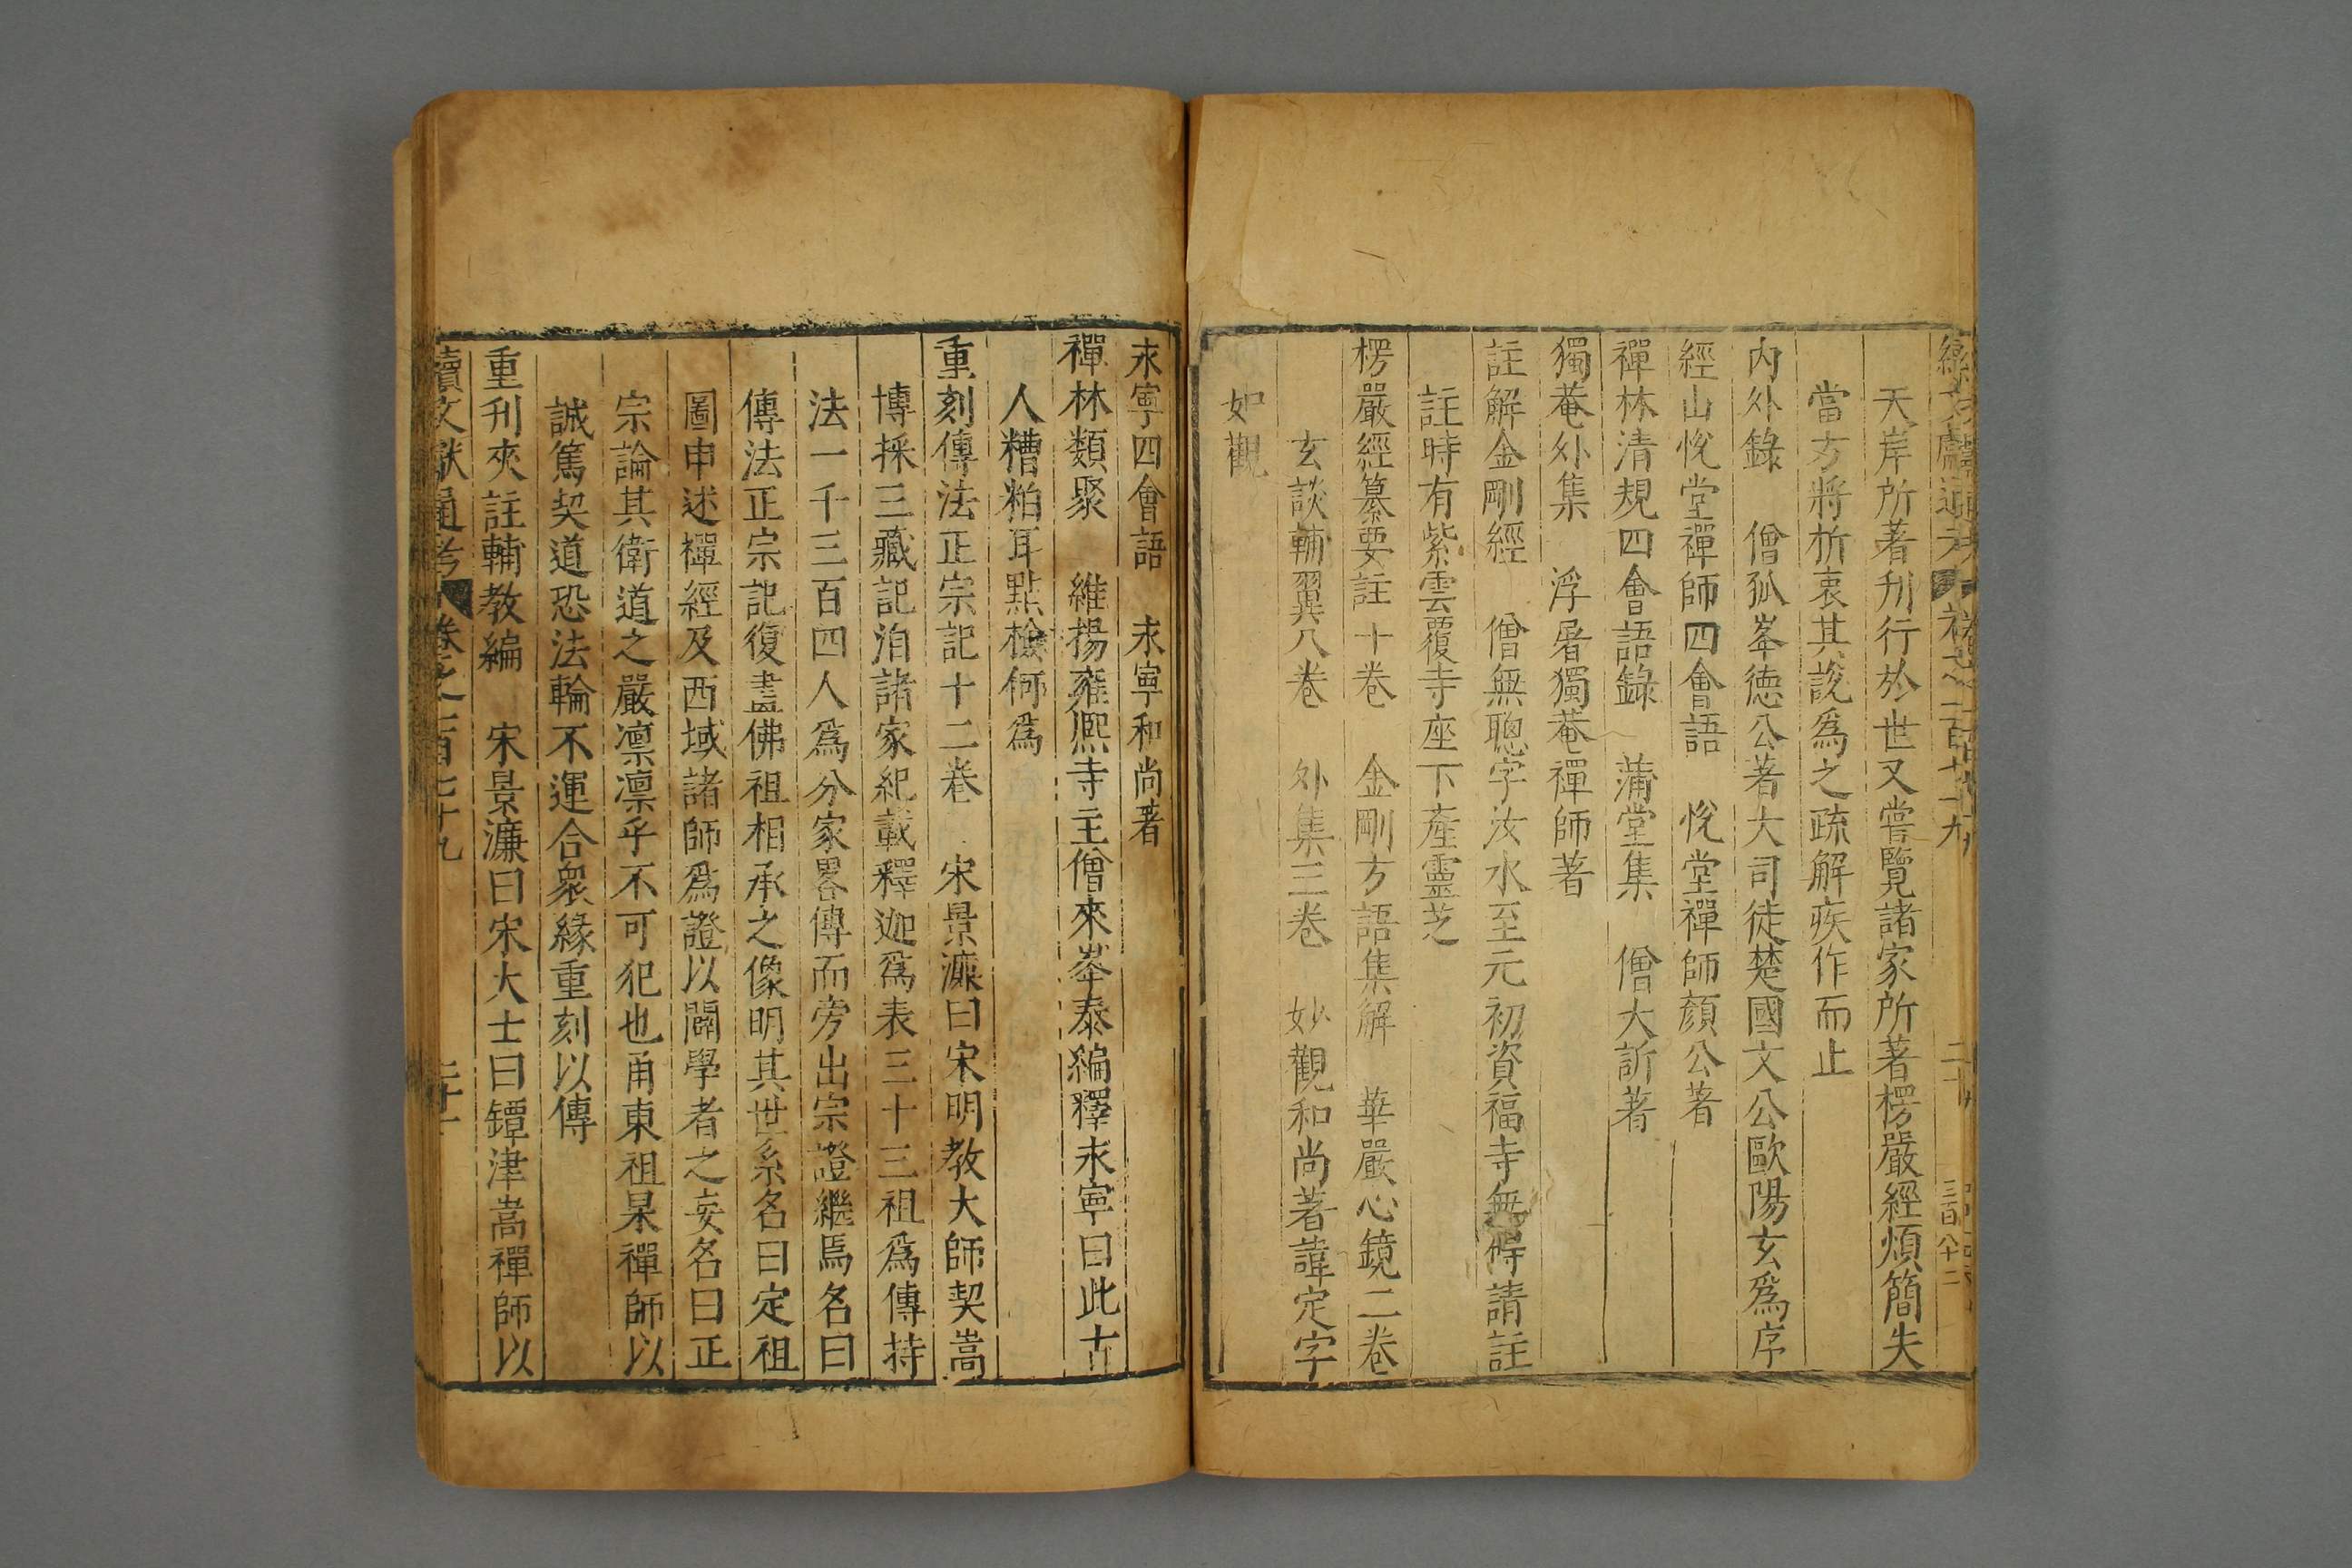 續文獻通考 卷之一百七十九 二十
三百八十二
天岸所著刋行於世又嘗覽諸家所著楞嚴經煩簡失
當方將析衷其說爲之疏解疾作而止
內外錄 僧狐峯德公著大司徒楚國文公歐陽玄爲序
經山悅堂禪師四會語 悅堂禪師顏公著
禪林清規四會語錄 蒲堂集 僧大訢著
獨菴外集 浮屠獨菴禪師著
註解金剛經 僧無聰字汝水至元初資福寺無碍請註
註時有紫雲覆寺座下產靈芝
楞嚴經纂要註十卷 金剛方語集解 華嚴心鏡二卷
玄談輔翼八卷 外集三卷 妙觀和尚著諱定字
如觀
永寧四會語 永寧和尚著
禪林類聚 維揚雍熙寺主僧來峯泰編釋永寧曰此古
人糟粕耳點檢何爲
重刻傳法正宗記十二卷 宋景濂曰宋明教大師契嵩
博採三藏記洎諸家紀載釋迦爲表三十三祖爲傳持
法一千三百四人爲分家畧傳而旁出宗證繼焉名曰
傳法正宗記復畫佛祖相承之像明其世系名曰定祖
圖申述禪經及西域諸師爲證以闢學者之妄名曰正
宗論其衛道之嚴凛凛乎不可犯也甬東祖杲禪師以
誠篤契道恐法輪不運合衆緣重刻以傳
重刋夾註輔教編 宋景濂曰宋大士曰鐔津嵩禪師以
續文獻通考 卷之一百七十九 二十一